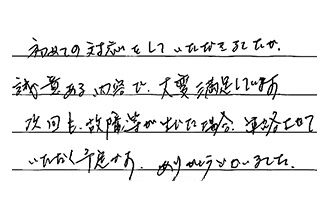 初めての対応をしていただきましたが、
誠意ある内容で、大変満足しています
次回も、故障等が出た場合、連絡させて
いただく予定です。ありがとうございました。